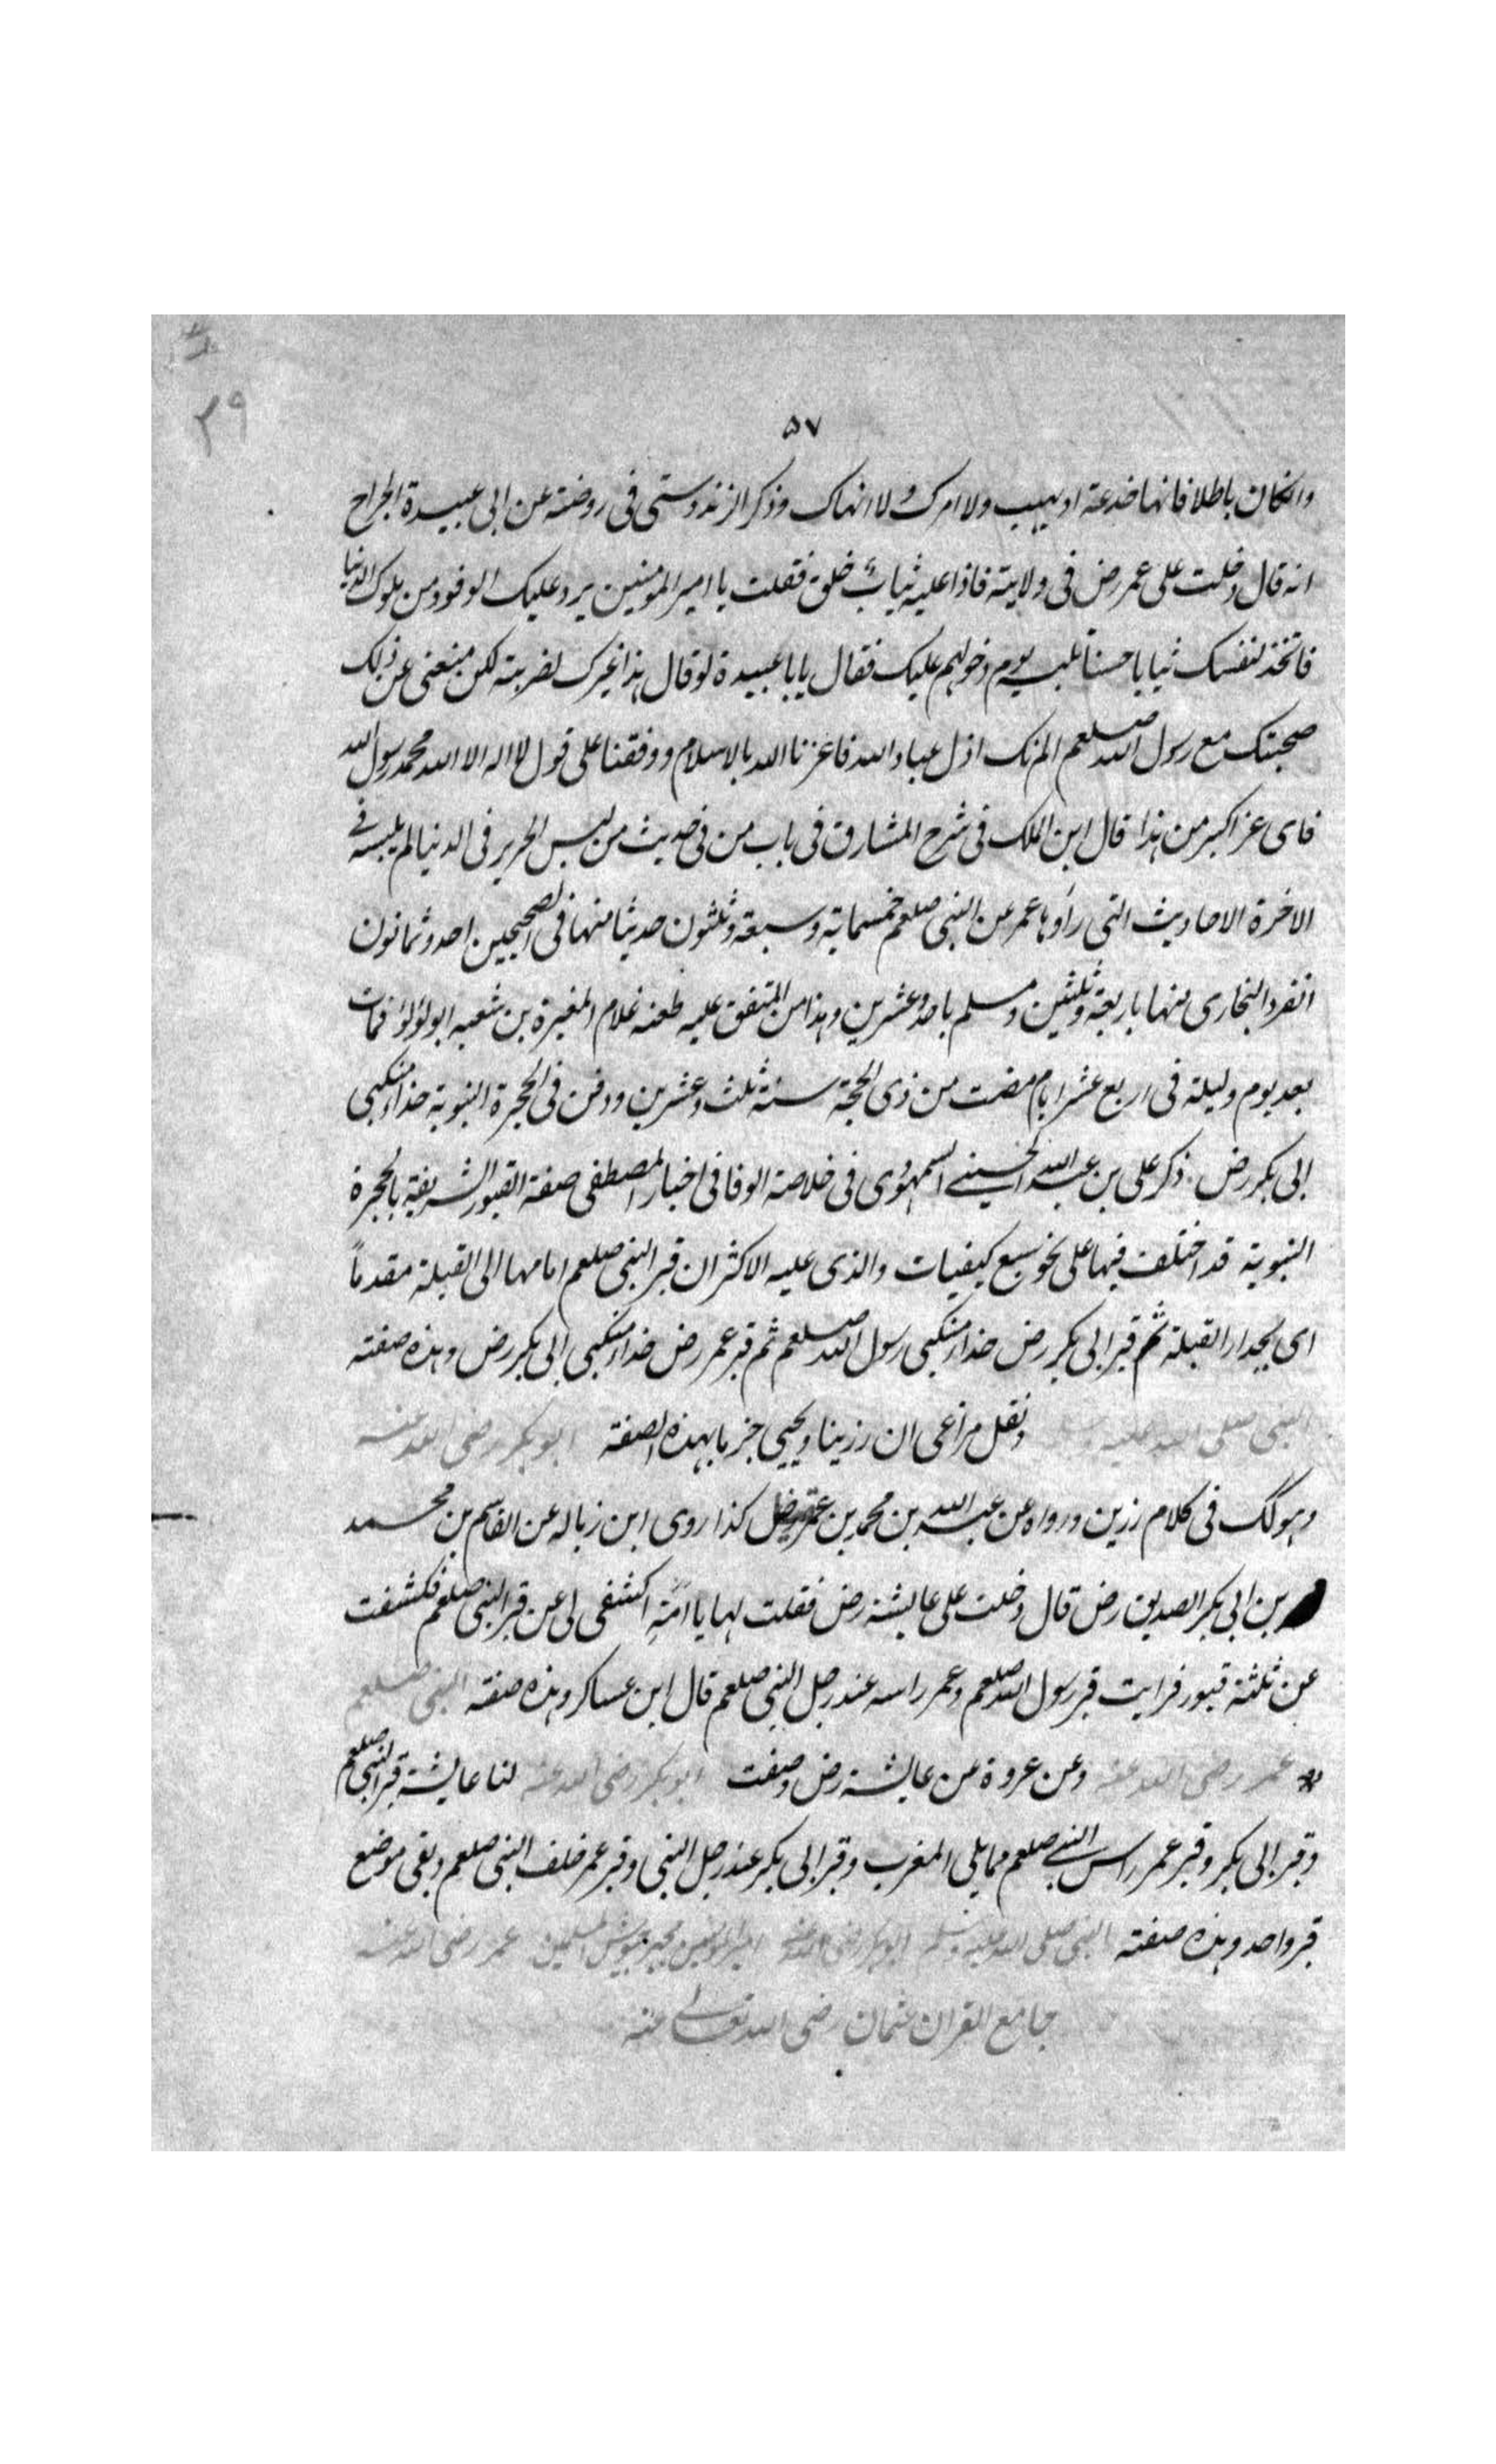 ٢٩
٥٧
وانكان باطلا فانها خدعة اديبب ولا امرك ولا انهاك وذكر الزندوستى فى روضته عن ابى عبيدة الجراح
انه قال دخلت على عمر رض فى ولايته فاذا عليه ثياب خلق فقلت يا امير المومنين يرد عليك الوفود من ملوك الدنيا
فاتخذ لنفسك ثيابا حسنا تلبس يوم دخولهم عليك فقال يابا عبيدة لو قال هذا غيرك لضربته لكن منعنى عن ذلك
صحبتك مع رسول الله صلعم الم نك اذل عباد الله فاعزنا الله بالاسلام ووفقنا على قول لا اله الا الله محمد رسول الله
فاى عز اكبر من هذا قال ابن الملك فى شرح المشارق فى باب من فى حديث من لبس الحرير فى الدنيا لم يلبسه فى
الاخرة الاحاديث التى رواها عمر عن النبى صلعم خمسماية وسبعة وثلثون حديثا منها فى الصحيحين احد وثمانون
انفرد البخارى منها باربعة وثلثين ومسلم باحد وعشرين وهذا من المتفق عليه طعنه غلام المغيرة بن شعبه ابو لؤلؤ فمات
بعد يوم وليلة فى اربع عشر ايام مضت من ذى الحجة سنة ثلث وعشرين ودفن فى الحجرة النبوية حذاء منكبى
ابى بكر رض ذكر على بن عبد الله الحسينى السمهودى فى خلاصة الوفا فى اخبار المصطفى صفة القبور الشريفة بالحجرة
النبوية قد اختلف فيها على نحو سبع كيفيات والذى عليه الاكثر ان قبر النبى صلعم امامها الى القبلة مقدما
اى بجدار القبلة ثم قبر ابى بكر رض حذاء منكبى رسول الله صلعم ثم قبر عمر رض حذاء منكبى ابى بكر رض وهذه صفته
النبى صلى الله عليه وسلم ونقل مراغى ان رزينا ويحيى جزما بهذه الصفة ابو بكر رضى الله عنه
وهو لك فى كلام رزين ورواه عن عبد الله بن محمد بن كذا روى ابن زباله عن القاسم بن محمد
بن ابى بكر الصديق رض قال دخلت على عايشة رض فقلت لها يا امة اكشفى لى عن قبر النبى صلعم فكشفت
عن ثلثة قبور فرايت قبر رسول الله صلعم وعمر راسه عند رجل النبى صلعم قال ابن عساكر وهذه صفته النبى صلعم
عمر رضى الله عنه وعن عروة عن عايشة رض وصفت ابو بكر رضى الله عنه لنا عايشة قبر النبى صلعم
وقبر ابى بكر وقبر عمر راس النبى صلعم مما يلى المغرب وقبر ابى بكر عند رجل النبى وقبر عمر خلف النبى صلعم وبقى موضع
قبر واحد وهذه صفته النبى صلى الله عليه وسلم ابو بكر رضى الله عنه امير المومنين عمر رضى الله عنه
جامع القران عثمان رضى الله تعالى عنه